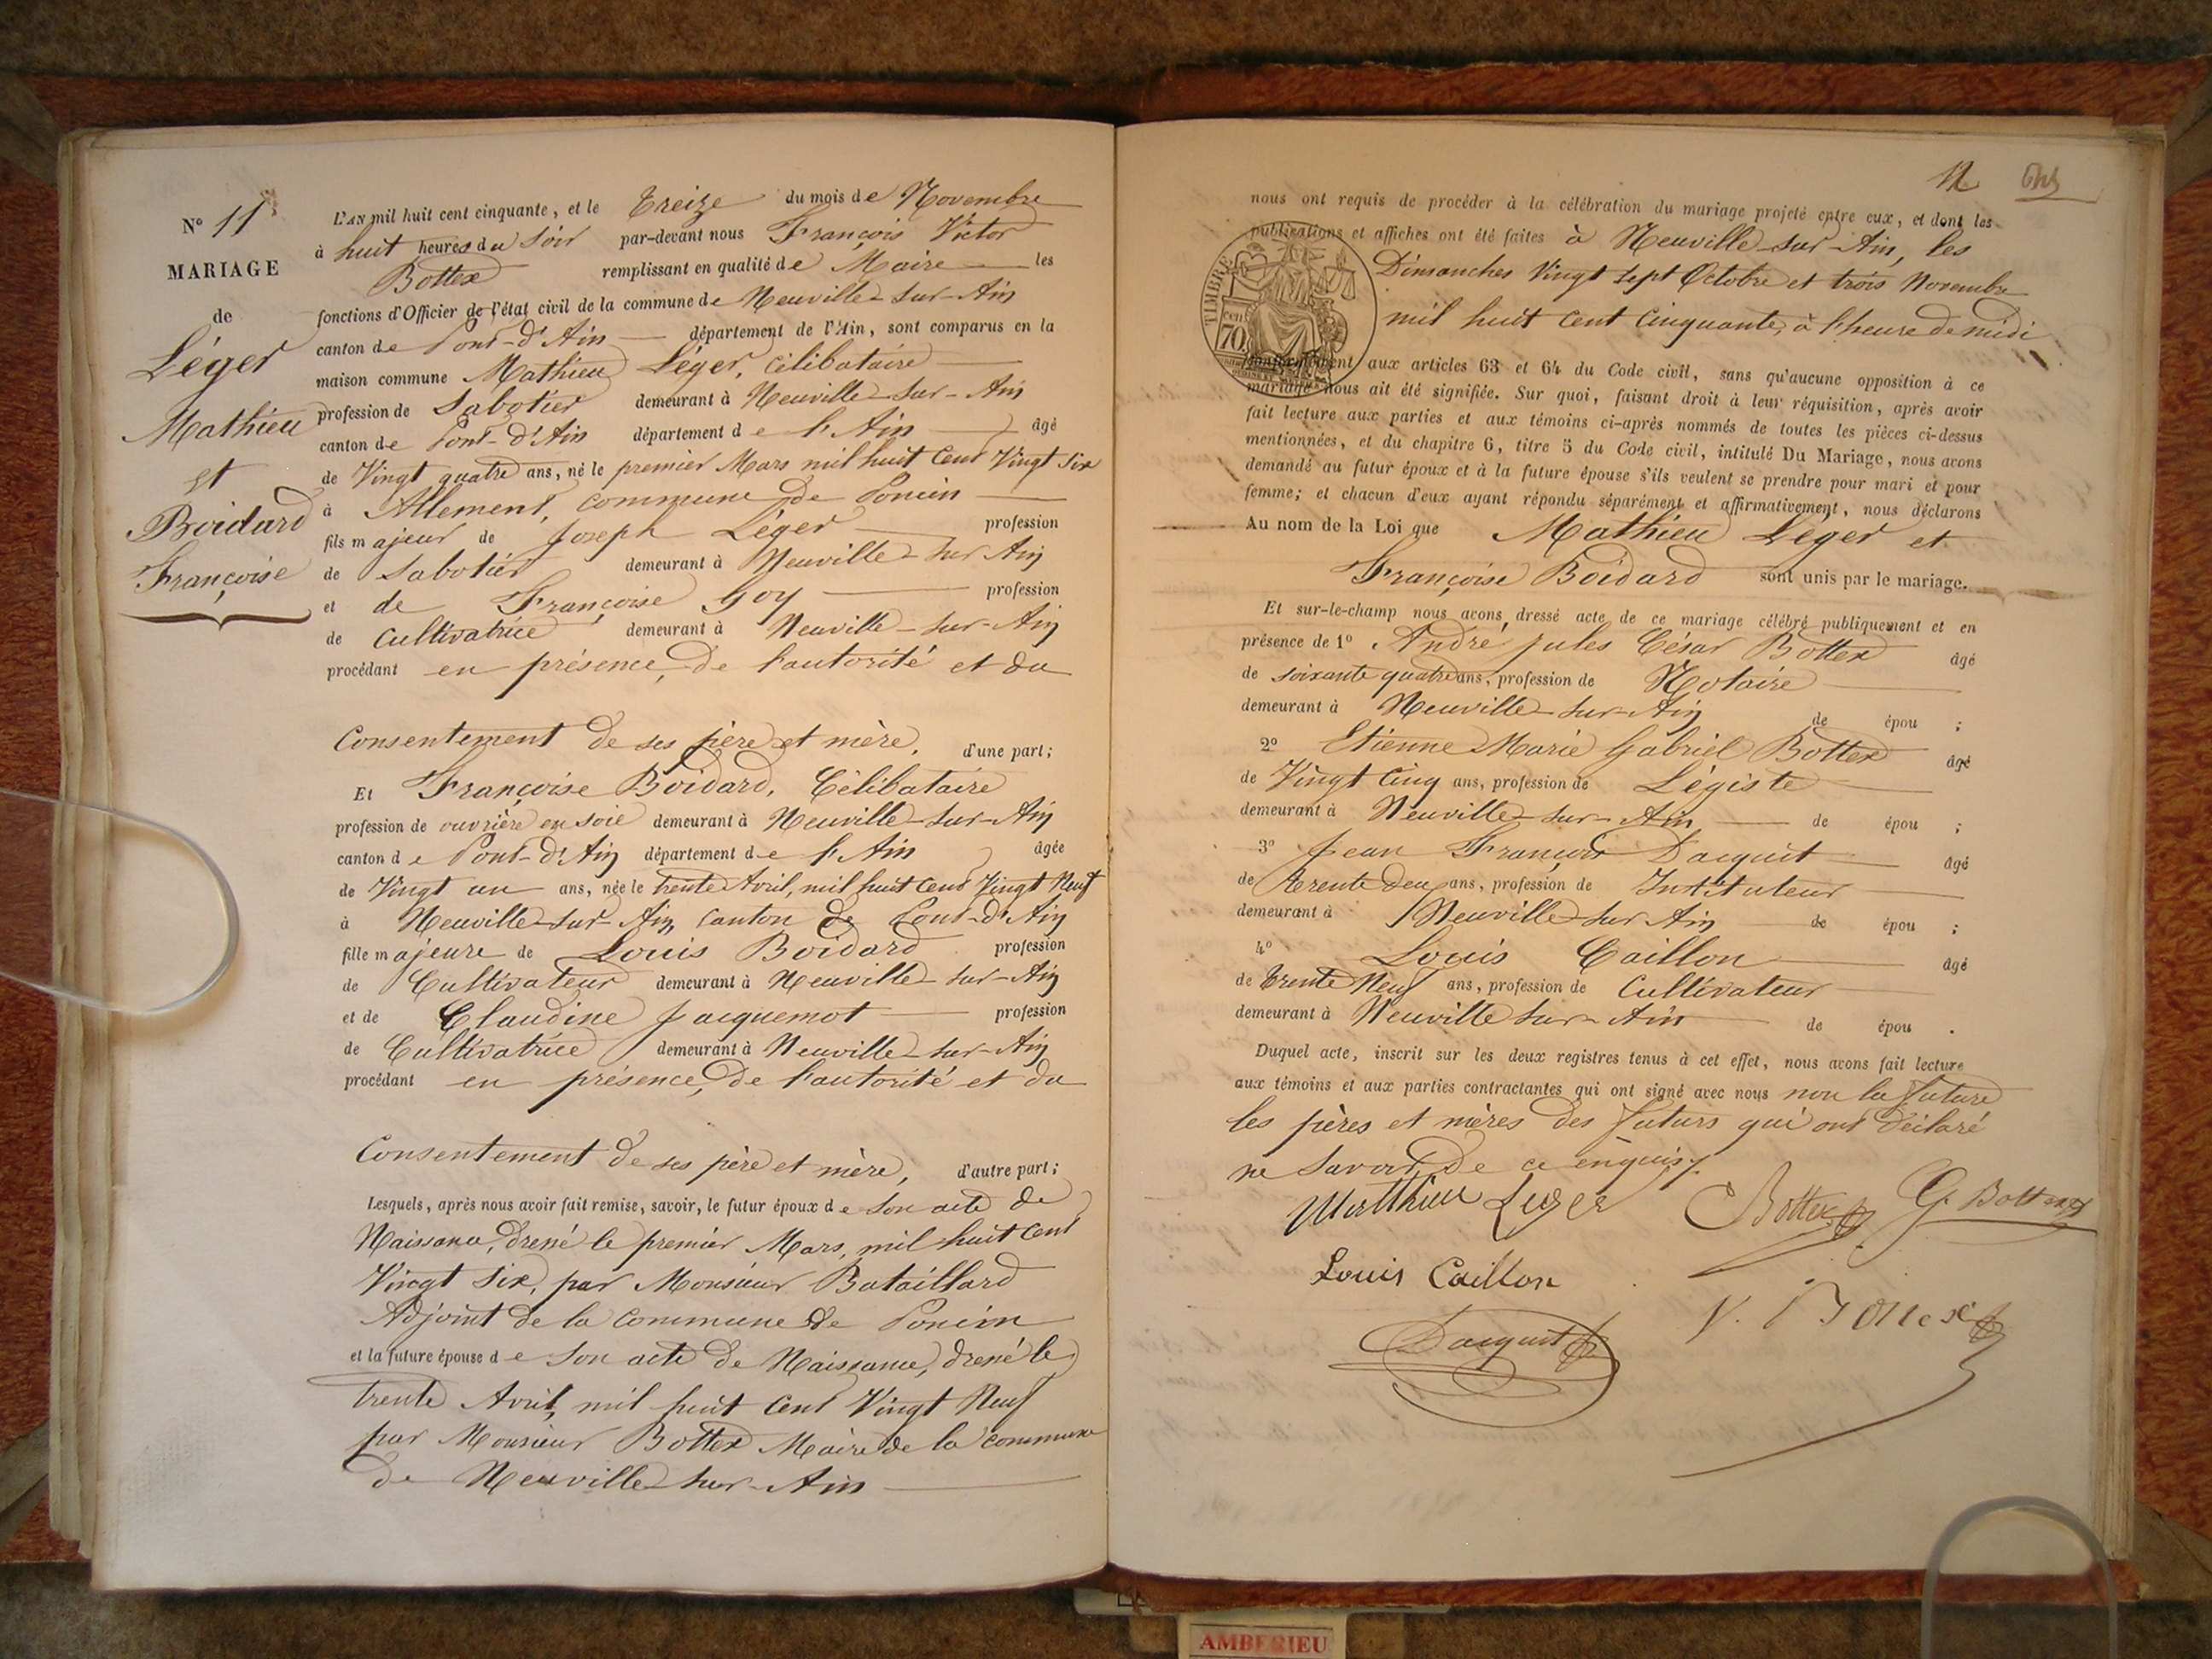 N° 11
MARIAGE
de
Léger
Mathieu
et
Boidard
Françoise
L'AN mil huit cent cinquante, et le Treize du mois de Novembre
à huit heures du Soir par-devant nous François Victor
Bottex remplissant en qualité de Maire les
fonctions d'Officier de l'état civil de la commune de Neuville-sur-Ain
canton de Pont-d'Ain département de l'Ain, sont comparus en la
maison commune Mathieu Léger, Célibataire
profession de Sabotier demeurant à Neuville-sur-Ain
canton de Pont-d'Ain département de l'Ain âgé
de Vingt quatre ans, né le premier Mars mil huit Cent Vingt Six
à Allement, commune de Poncin
fils majeur de Joseph Léger profession
de Sabotier demeurant à Neuville-sur Ain
et de Françoise Goy profession
de Cultivatrice demeurant à Neuville-sur-Ain
procédant en présence, de l'autorité et du
Consentement de ses père et mère, d'une part;
Et Françoise Boidard, Célibataire
profession de ouvrière en soie demeurant à Neuville-sur-Ain
canton de Pont-d'Ain département de l'Ain âgée
de Vingt un ans, née le trente Avril, mil huit Cent Vingt Neuf
à Neuville-sur-Ain, canton de Pont-d'Ain
fille majeure de Louis Boidard profession
de Cultivateur demeurant à Neuville-sur-Ain
et de Claudine Jacquemot profession
de Cultivatrice demeurant à Neuville-sur-Ain
procédant en présence, de l'autorité et du
Consentement de ses père et mère, d'autre part;
Lesquels, après nous avoir fait remise, savoir, le futur époux de Son acte de
Naissance, dressé le premier Mars, mil huit Cent
Vingt Six, par Monsieur Bataillard
Adjoint de la Commune de Poncin
et la future épouse de Son acte de Naissance, dressé le
trente Avril, mil huit Cent Vingt Neuf
par Monsieur Bottex Maire de la commune
de Neuville sur-Ain
12
nous ont requis de procéder à la célébration du mariage projeté entre eux, et dont les
publications et affiches ont été faites à Neuville-sur-Ain, les
Dimanches Vingt sept Octobre et trois Novembre
mil huit cent Cinquante, à l'heure de midi
TIMBRE
70
conformément aux articles 63 et 64 du Code civil, sans qu'aucune opposition à ce
mariage nous ait été signifiée. Sur quoi, faisant droit à leur réquisition, après avoir
fait lecture aux parties et aux témoins ci-après nommés de toutes les pièces ci-dessus
mentionnées, et du chapitre 6, titre 5 du Code civil, intitulé Du Mariage, nous avons
demandé au futur époux et à la future épouse s'ils veulent se prendre pour mari et pour
femme; et chacun d'eux ayant répondu séparément et affirmativement, nous déclarons
Au nom de la Loi que Mathieu Léger et
Françoise Boidard sont unis par le mariage.
Et sur-le-champ nous avons dressé acte de ce mariage célébré publiquement et en
présence de 1° André Jules César Bottex âgé
de soixante quatre ans, profession de Notaire
demeurant à Neuville-sur-Ain de épou ;
2° Etienne Marie Gabriel Bottex âgé
de Vingt Cinq ans, profession de Légiste
demeurant à Neuville-sur-Ain de épou ;
3° Jean François Dacquit âgé
de trente deux ans, profession de Instituteur
demeurant à Neuville-sur Ain de épou ;
4° Louis Caillon âgé
de Trente Neuf ans, profession de Cultivateur
demeurant à Neuville sur-Ain de épou .
Duquel acte, inscrit sur les deux registres tenus à cet effet, nous avons fait lecture
aux témoins et aux parties contractantes qui ont signé avec nous non la future
les pères et mères des futurs qui ont déclaré
ne savoir, de ce enquis /.
Matthieu Leger Bottex G. Bottex
Louis Caillon
V. Bottex
Dacquit
AMBERIEU